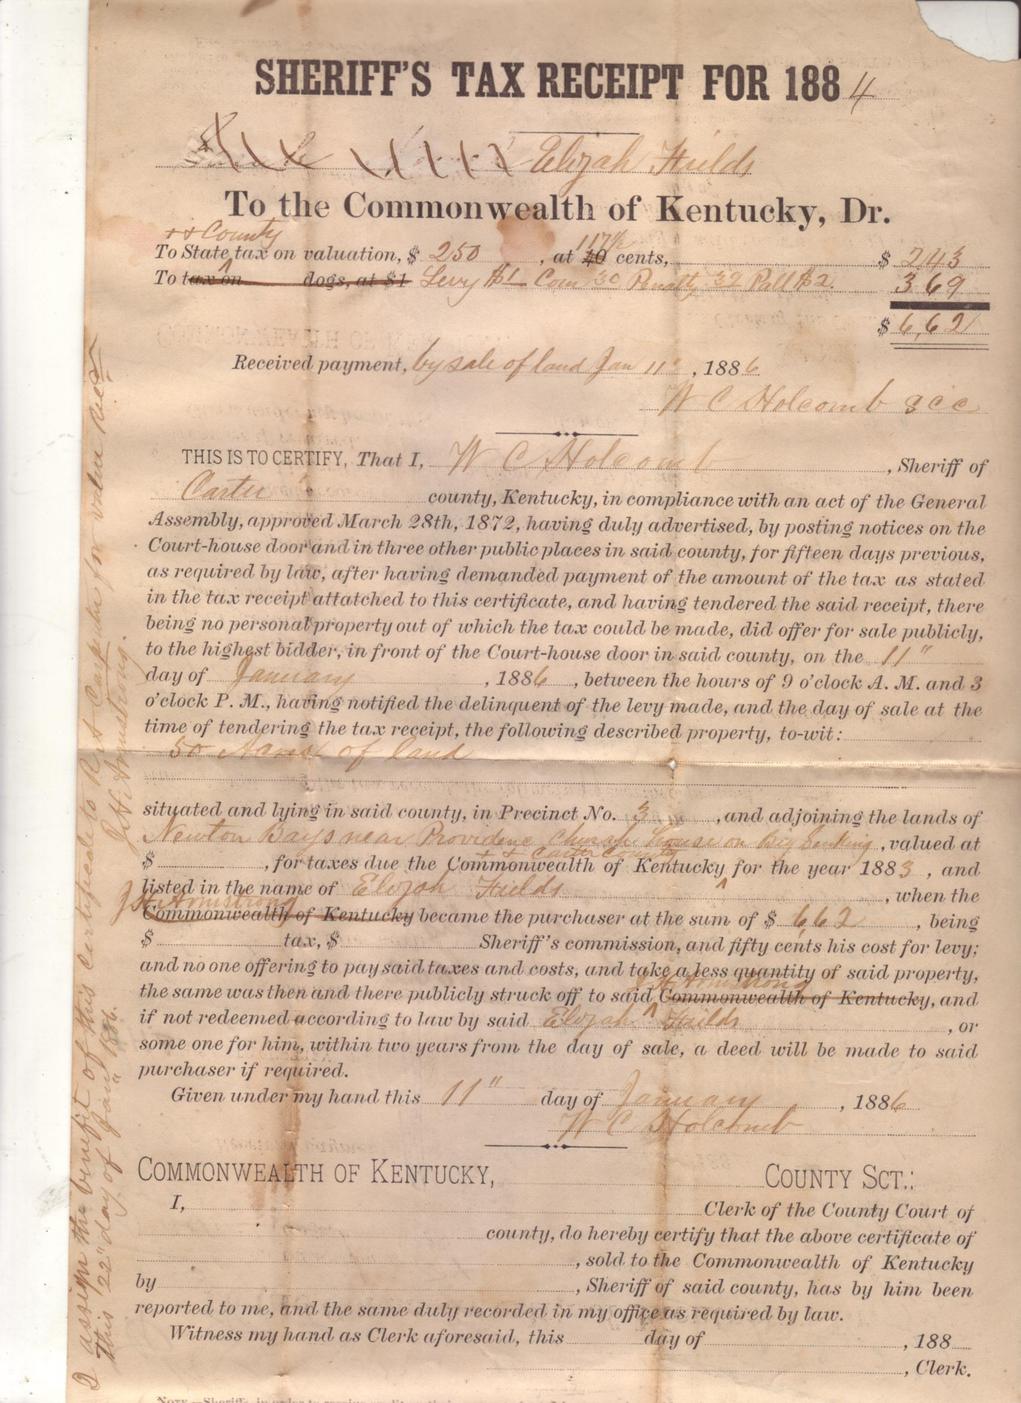 SHERIFF'S TAX RECEIPT FOR 1884
Elijah Fields
To the Commonwealth of Kentucky, Dr.
& County
117½
To State tax on valuation, $ 250 , at 40 cents, $ 2 43
To tax on dogs, at $1 Levy $1 Com 30 Penalty 39 Poll $2. 3 69
$ 6,62
Received payment, by sale of land Jan 11" , 1886
W C Holcomb S C C
THIS IS TO CERTIFY, That I, W C Holcomb , Sheriff of
Carter county, Kentucky, in compliance with an act of the General
Assembly, approved March 28th, 1872, having duly advertised, by posting notices on the
Court-house door and in three other public places in said county, for fifteen days previous,
as required by law, after having demanded payment of the amount of the tax as stated
in the tax receipt attatched to this certificate, and having tendered the said receipt, there
being no personal property out of which the tax could be made, did offer for sale publicly,
to the highest bidder, in front of the Court-house door in said county, on the 11"
day of January , 1886 , between the hours of 9 o'clock A. M. and 3
o'clock P. M., having notified the delinquent of the levy made, and the day of sale at the
time of tendering the tax receipt, the following described property, to-wit:
50 Acres of land
situated and lying in said county, in Precinct No. 3 , and adjoining the lands of
Newton Bays near Providence Church House on Big Sinking , valued at
& Carter Co
$ , for taxes due the Commonwealth of Kentucky for the year 1883 , and
listed in the name of Elijah Fields , when the
J H Armstrong
Commonwealth of Kentucky became the purchaser at the sum of $ 6,62 , being
$ tax, $ Sheriff's commission, and fifty cents his cost for levy;
and no one offering to pay said taxes and costs, and take a less quantity of said property,
J H Armstrong
the same was then and there publicly struck off to said Commonwealth of Kentucky, and
if not redeemed according to law by said Elijah Fields , or
some one for him, within two years from the day of sale, a deed will be made to said
purchaser if required.
Given under my hand this 11" day of January , 1886
W C Holcomb
COMMONWEALTH OF KENTUCKY, COUNTY SCT.:
I, Clerk of the County Court of
county, do hereby certify that the above certificate of
, sold to the Commonwealth of Kentucky
by , Sheriff of said county, has by him been
reported to me, and the same duly recorded in my office as required by law.
Witness my hand as Clerk aforesaid, this day of , 188
, Clerk.
I assign the benefit of this Certificate to for value
This 22" day of Jany 1886. J. H. Armstrong.